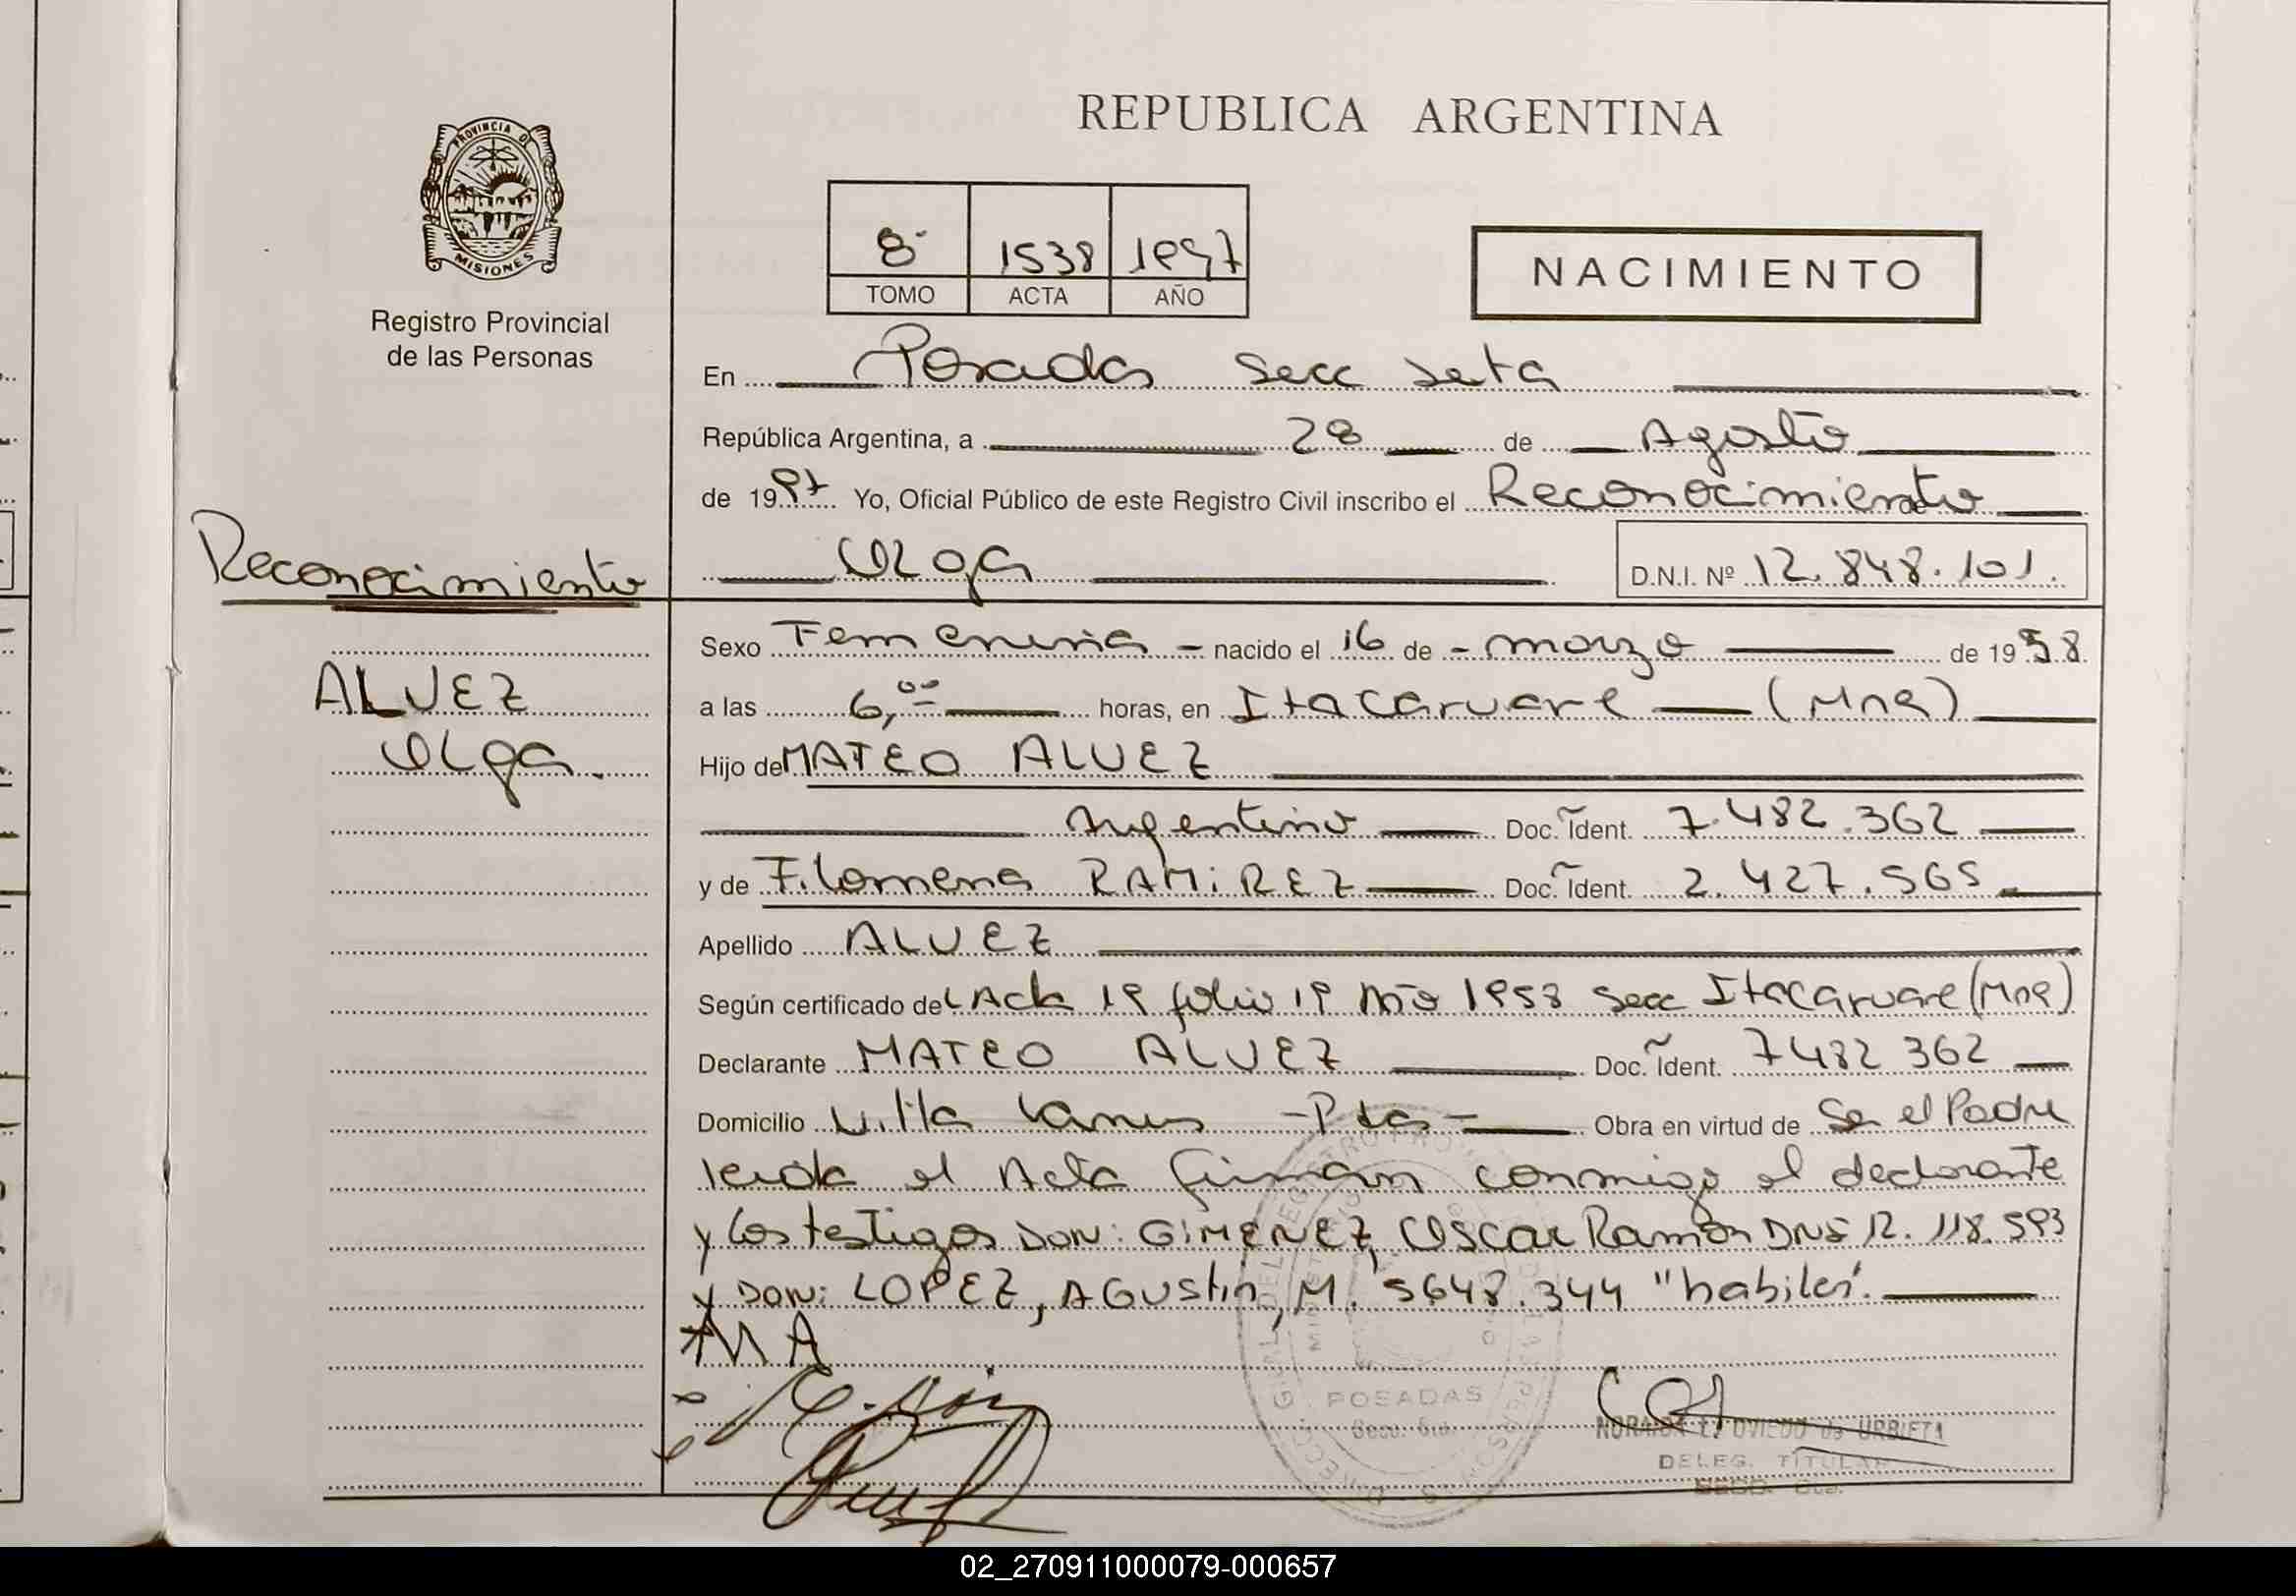 REPUBLICA ARGENTINA
PROVINCIA DE
MISIONES
Registro Provincial
de las Personas
8º 1538 1997
TOMO ACTA AÑO
NACIMIENTO
En Posadas Secc Sexta
República Argentina, a 28 de Agosto
de 1997 Yo, Oficial Público de este Registro Civil inscribo el Reconocimiento de
Reconocimiento
Olga D.N.I. Nº 12.848.101.
Sexo Femenina - nacido el 16 de - marzo de 1958
ALVEZ
a las 6,00 horas, en Itacaruare (Mnes)
Olga.
Hijo de MATEO ALVEZ
Argentino Doc. Ident. 7.482.362
y de Filomena RAMiREZ Doc. Ident. 2.427.565
Apellido ALVEZ
Según certificado del Acta 19 folio 19 Año 1958 Secc Itacaruare (Mnes)
Declarante MATEO ALVEZ Doc. Ident. 7482 362
Domicilio Villa Lanus - Pdas - Obra en virtud de Ser el Padre
leida el Acta firman conmigo el declarante
y los testigos DON: GiMENEZ, OSCAR Ramon DNI 12.118.593
y DON: LOPEZ, AGUStin, M. 5648.344 "habiles".
M A
POSADAS
Secc. 6ta.
OVIEDO de URBIETA
DELEG. TITULAR
SECC. 6ta.
02_270911000079-000657